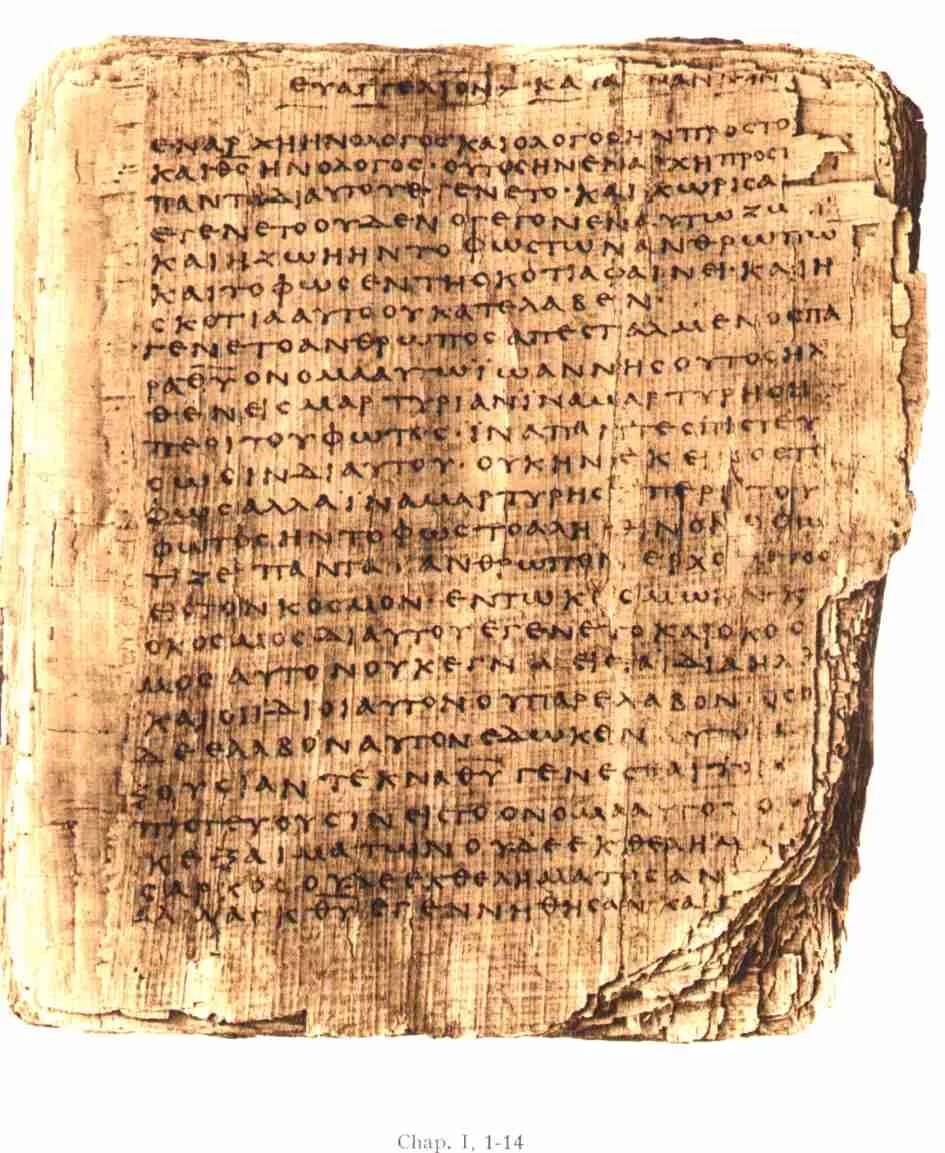 ΕΥΑΓΓΕΛΙΟΝ ΚΑΤΑ ΙΩΑΝΝΗΝ
ΕΝΑΡΧΗΗΝΟΛΟΓΟΣΚΑΙΟΛΟΓΟΣΗΝΠΡΟΣΤΟ
ΚΑΙΘΣΗΝΟΛΟΓΟΣ·ΟΥΤΟΣΗΝΕΝΑΡΧΗΠΡΟΣΤ
ΠΑΝΤΑΔΙΑΥΤΟΥΕΓΕΝΕΤΟ·ΚΑΙΧΩΡΙΣΑ
ΕΓΕΝΕΤΟΟΥΔΕΝΟΓΕΓΟΝΕΝΕΝΑΥΤΩΖΩ
ΚΑΙΗΖΩΗΗΝΤΟΦΩΣΤΩΝΑΝΘΡΩΠΩ
ΚΑΙΤΟΦΩΣΕΝΤΗΣΚΟΤΙΑΦΑΙΝΕΙ·ΚΑΙΗ
ΣΚΟΤΙΑΑΥΤΟΟΥΚΑΤΕΛΑΒΕΝ·
ΓΕΝΕΤΟΑΝΘΡΩΠΟΣΑΠΕΣΤΑΛΜΕΝΟΣΠΑ
ΡΑΘΥΟΝΟΜΑΑΥΤΩΪΩΑΝΝΗΣΟΥΤΟΣΗΛ
ΘΕΝΕΙΣΜΑΡΤΥΡΙΑΝΪΝΑΜΑΡΤΥΡΗΣΗ
ΠΕΡΙΤΟΥΦΩΤΟΣ·ΪΝΑΠΑΝΤΕΣΠΙΣΤΕΥ
ΣΩΣΙΝΔΙΑΥΤΟΥ·ΟΥΚΗΝΕΚΕΙΝΟΣΤΟ
ΦΩΣΑΛΛΑΪΝΑΜΑΡΤΥΡΗΣΗΠΕΡΙΤΟΥ
ΦΩΤΟΣ·ΗΝΤΟΦΩΣΤΟΑΛΗΘΙΝΟΝΟΦΩ
ΤΙΖΕΙΠΑΝΤΑΑΝΘΡΩΠΟΝΕΡΧΟΜΕΝΟΝ
ΕΙΣΤΟΝΚΟΣΜΟΝ·ΕΝΤΩΚΟΣΜΩΗΝΚ
ΟΚΟΣΜΟΣΔΙΑΥΤΟΥΕΓΕΝΕΤΟΚΑΙΟΚΟΣ
ΜΟΣΑΥΤΟΝΟΥΚΕΓΝΩΕΙΣΤΑΙΔΙΑΗΛΘ
ΚΑΙΟΙΪΔΙΟΙΑΥΤΟΝΟΥΠΑΡΕΛΑΒΟΝ·ΟΣΟ
ΔΕΕΛΑΒΟΝΑΥΤΟΝΕΔΩΚΕΝΑΥΤΟΙΣΕ
ΞΟΥΣΙΑΝΤΕΚΝΑΘΥΓΕΝΕΣΘΑΙΤΟΙΣ
ΠΙΣΤΕΥΟΥΣΙΝΕΙΣΤΟΟΝΟΜΑΑΥΤΟΥΟ
ΚΕΞΑΙΜΑΤΩΝΟΥΔΕΕΚΘΕΛΗΜΑ
ΣΑΡΚΟΣΟΥΔΕΕΚΘΕΛΗΜΑΤΟΣΑΝ
ΑΛΛΑΕΚΘΥΕΓΕΝΝΗΘΗΣΑΝΚΑΙ
Chap. I, 1-14